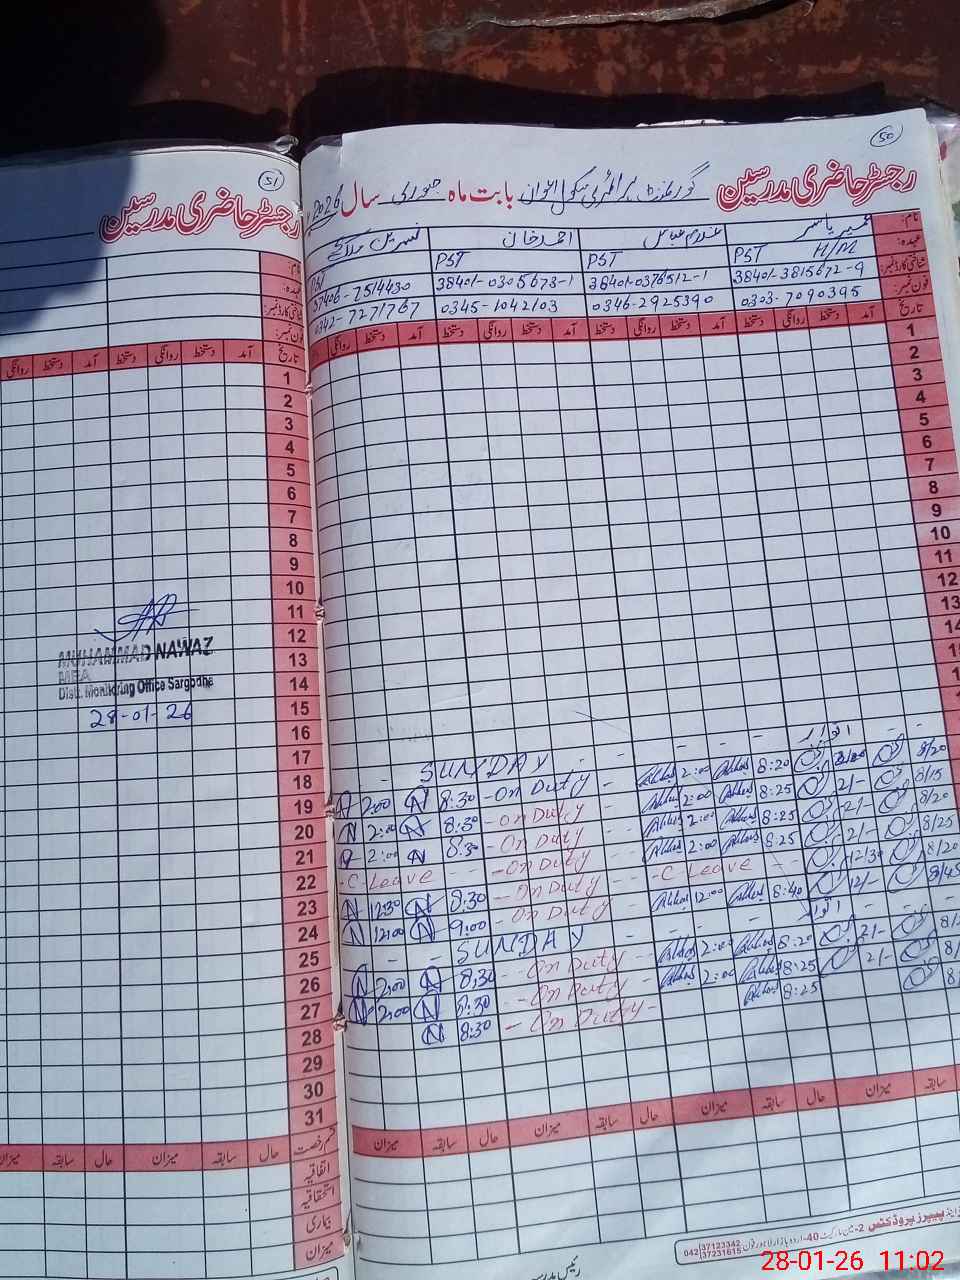 50
رجسٹر حاضری مدرسین گورنمنٹ پرائمری سکول اعوان بابت ماہ جنوری سال 2026
نام: عمیر یاسر غلام عباس احمد خان نسرین
عہدہ: PST H/M PST PST PST
شناختی کارڈ نمبر: 38401-3815672-9 38401-0376512-1 38401-0305678-1 37406-7514430
فون نمبر: 0303-7090395 0346-2925390 0345-1042103 0342-7271767
تاریخ آمد دستخط روانگی دستخط آمد دستخط روانگی دستخط آمد دستخط روانگی دستخط آمد دستخط روانگی
1
2
3
4
5
6
7
8
9
10
11
12
13
14
اتوار - - - - SUNDAY -
8/20 2/00 8:20 2:00 - On Duty - 8:30 2:00
8/15 2/- 8:25 2:00 - On Duty 8:30 2:00
8/20 2/- 8:25 2:00 - On Duty 8:30 2:00
8/25 2/- 8:25 2:00 - On Duty - C-Leave
8/20 12/30 - C-Leave - On Duty 8:30 12:30
8/45 12/- 8:40 12:00 - On Duty 9:00 12:00
اتوار - - SUNDAY - -
2/- 8:20 2:00 - On Duty 8:30 2:00
2/- 8:25 2:00 - On Duty 8:30 2:00
8:25 - On Duty - 8:30
سابقہ میزان حال سابقہ میزان حال سابقہ میزان حال سابقہ میزان
پیپرز پروڈکٹس 2-مین مارکیٹ 40-اردو بازار لاہور فون 042 37123342 37231615
51
رجسٹر حاضری مدرسین
نام:
عہدہ:
شناختی کارڈ نمبر:
فون نمبر:
تاریخ آمد دستخط روانگی دستخط آمد دستخط روانگی
1
2
3
4
5
6
7
8
9
10
11
12
13
14
15
16
17
18
19
20
21
22
23
24
25
26
27
28
29
30
31
MUHAMMAD NAWAZ
MEA
Distt. Monitoring Office Sargodha
28-01-26
قسم رخصت حال سابقہ میزان حال سابقہ میزان
اتفاقیہ
استحقاقیہ
بیماری
میزان
28-01-26 11:02